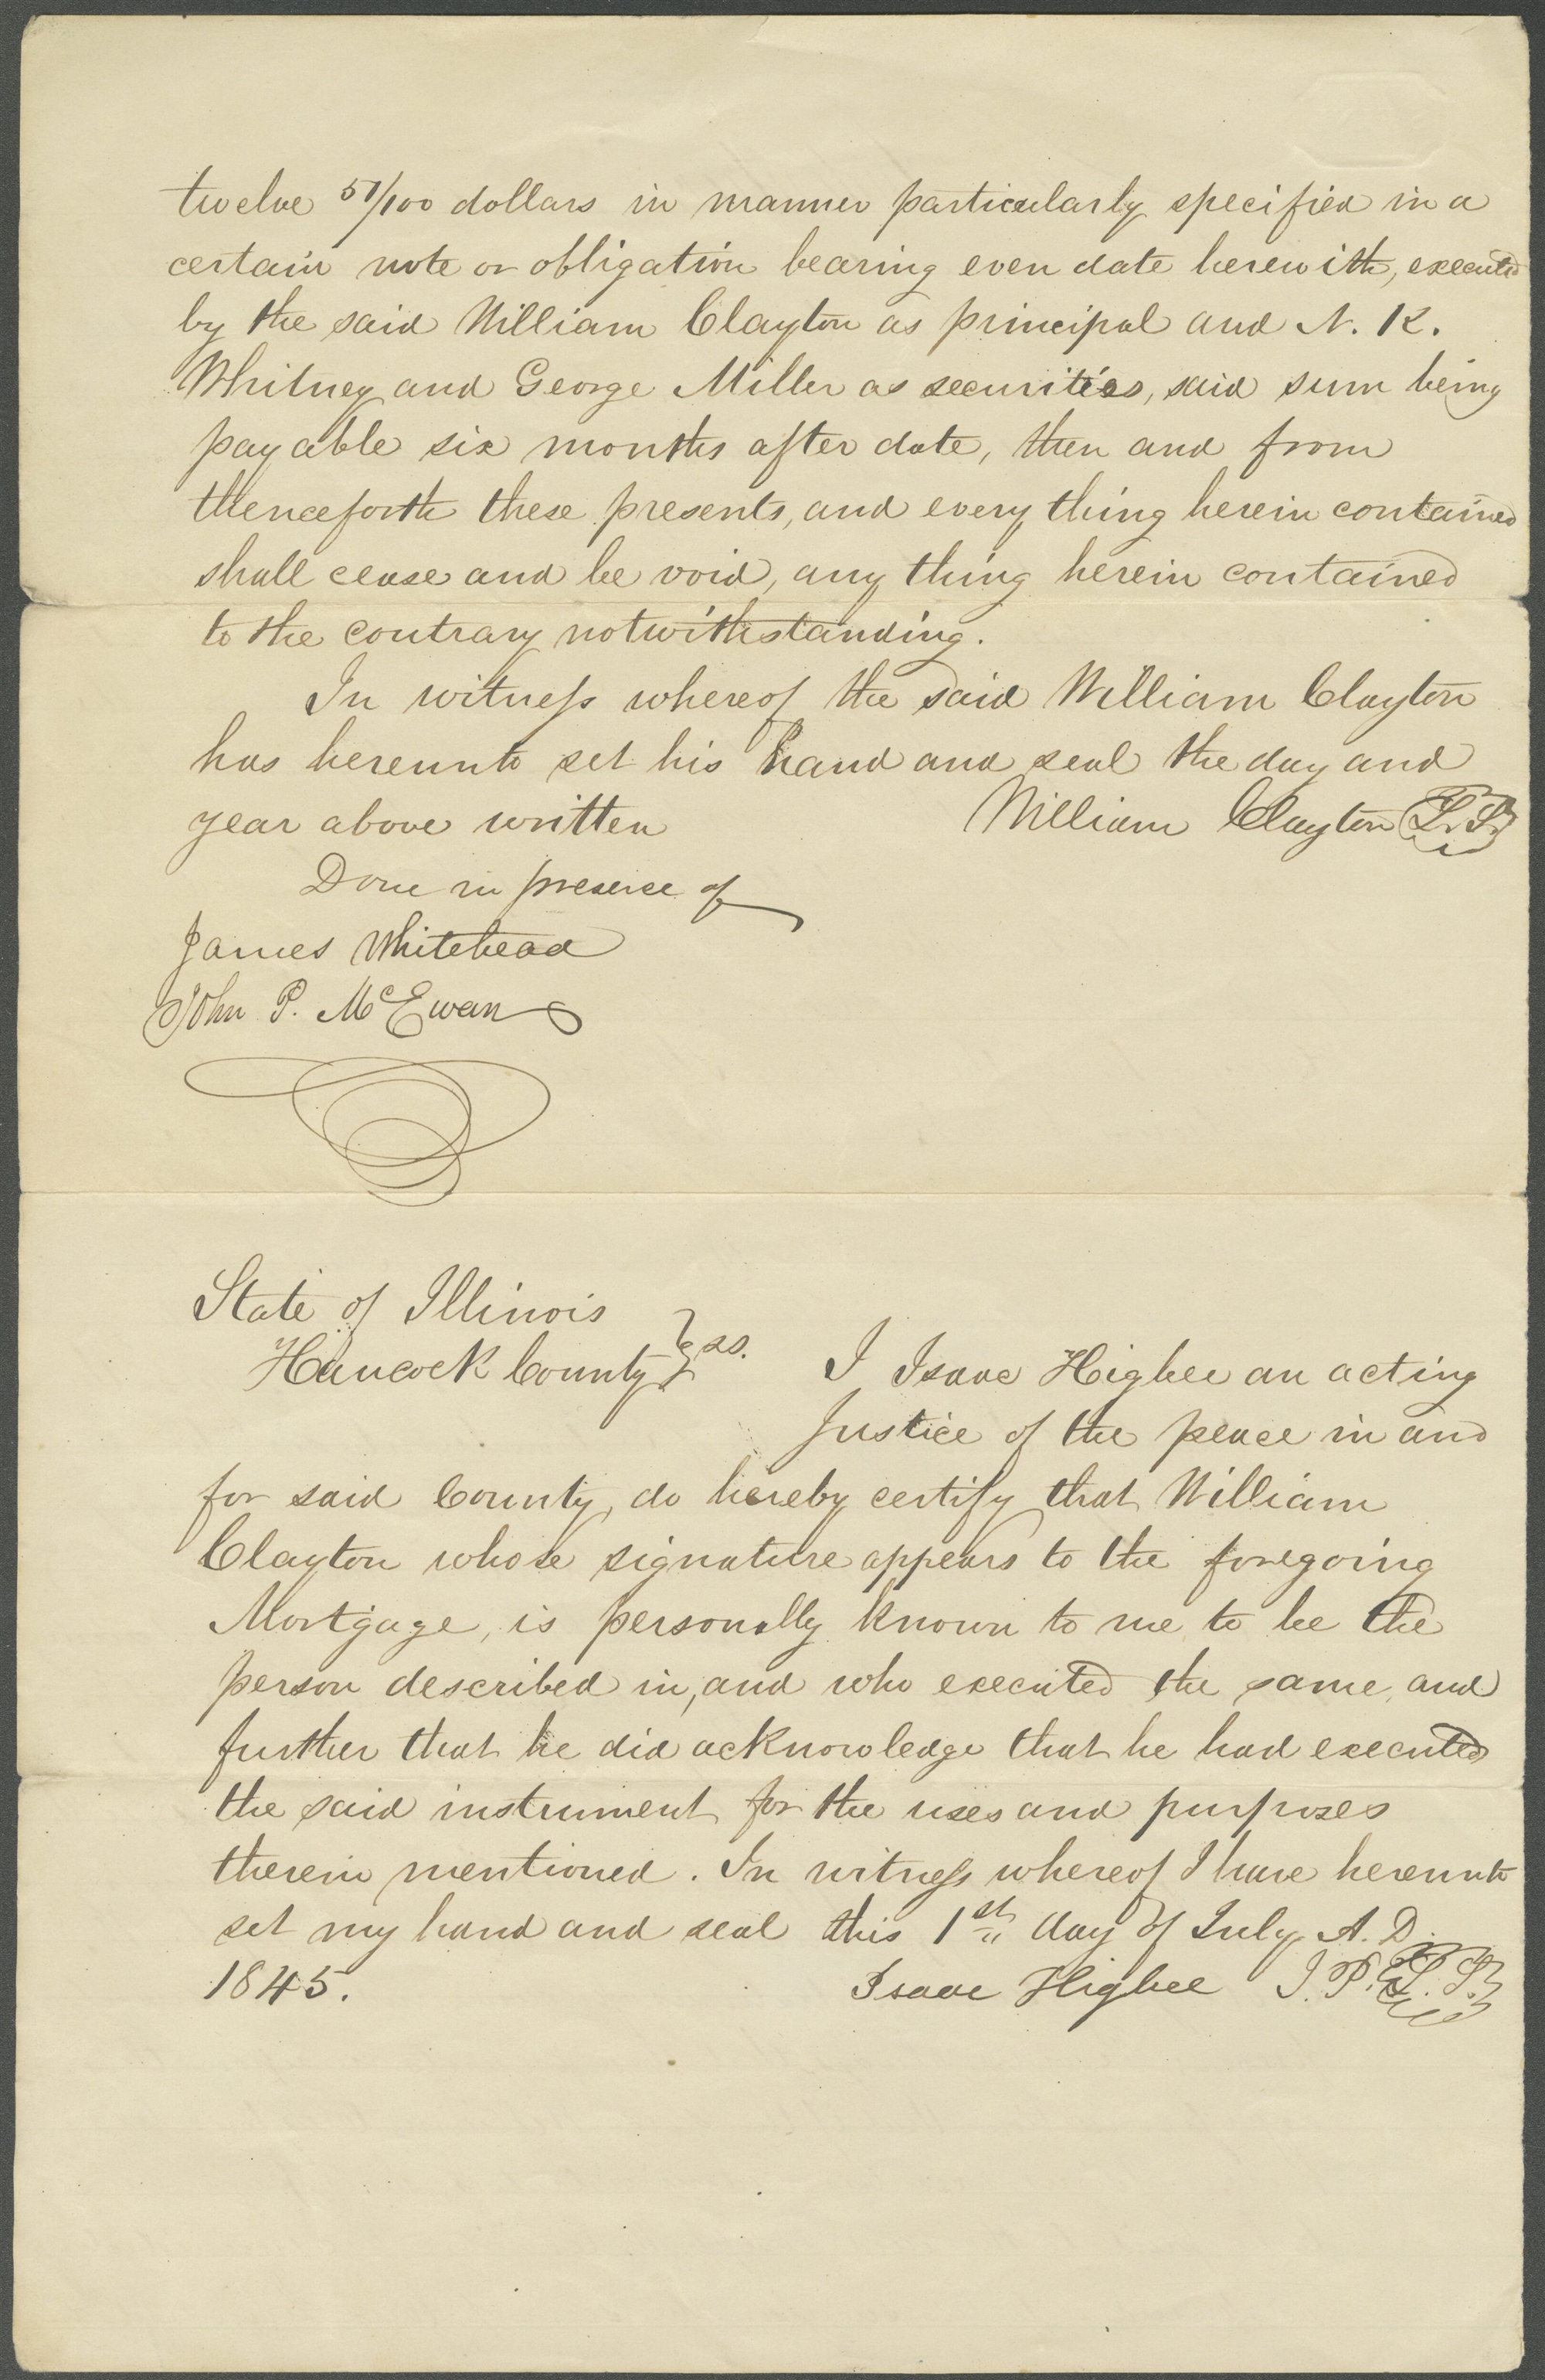 twelve 51/100 dollars in manner particularly specified in a
certain note or obligation bearing even date herewith, executed
by the said William Clayton as principal and N. K.
Whitney and George Miller as securities, said sum being
payable six months after date, then and from
thenceforth these presents, and every thing herein contained
shall cease and be void, any thing herein contained
to the contrary notwithstanding.
In witness whereof the said William Clayton
has hereunto set his hand and seal the day and
year above written William Clayton L. S.
Done in presence of
James Whitehead
John P. McEwan
State of Illinois
Hancock County } ss. I Isaac Higbee an acting
Justice of the peace in and
for said County, do hereby certify that William
Clayton whose signature appears to the foregoing
Mortgage, is personally known to me to be the
person described in, and who executed the same, and
further that he did acknowledge that he had executed
the said instrument for the uses and purposes
therein mentioned. In witness whereof I have hereunto
set my hand and seal this 1st day of July A. D.
1845. Isaac Higbee J. P. L. S.